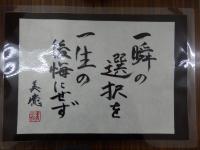 一瞬の
選択を
一生の
後悔にせず